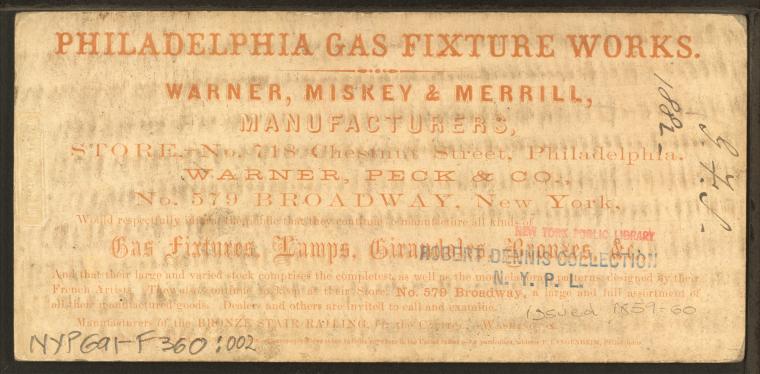 PHILADELPHIA GAS FIXTURE WORKS.
WARNER, MISKEY & MERRILL,
MANUFACTURERS,
STORE,—No. 718 Chestnut Street, Philadelphia.
WARNER, PECK & CO.,
No. 579 BROADWAY, New York,
Would respectfully that they continue to manufacture all kinds of
Gas Fixtures, Lamps, Girandoles, Bronzes, &c.
And that their large and varied stock comprises the completest, as well as the most patterns, designed by their
French Artists. They also continue to at their Store, No. 579 Broadway, a large and full assortment of
all their manufactured goods. Dealers and others are invited to call and examine.
Manufacturers of the BRONZE STAIR RAILING, the Washington
NEW YORK PUBLIC LIBRARY
ROBERT DENNIS COLLECTION
N. Y. P. L.
issued 1859-60
NYPG91-F360:002
1882-